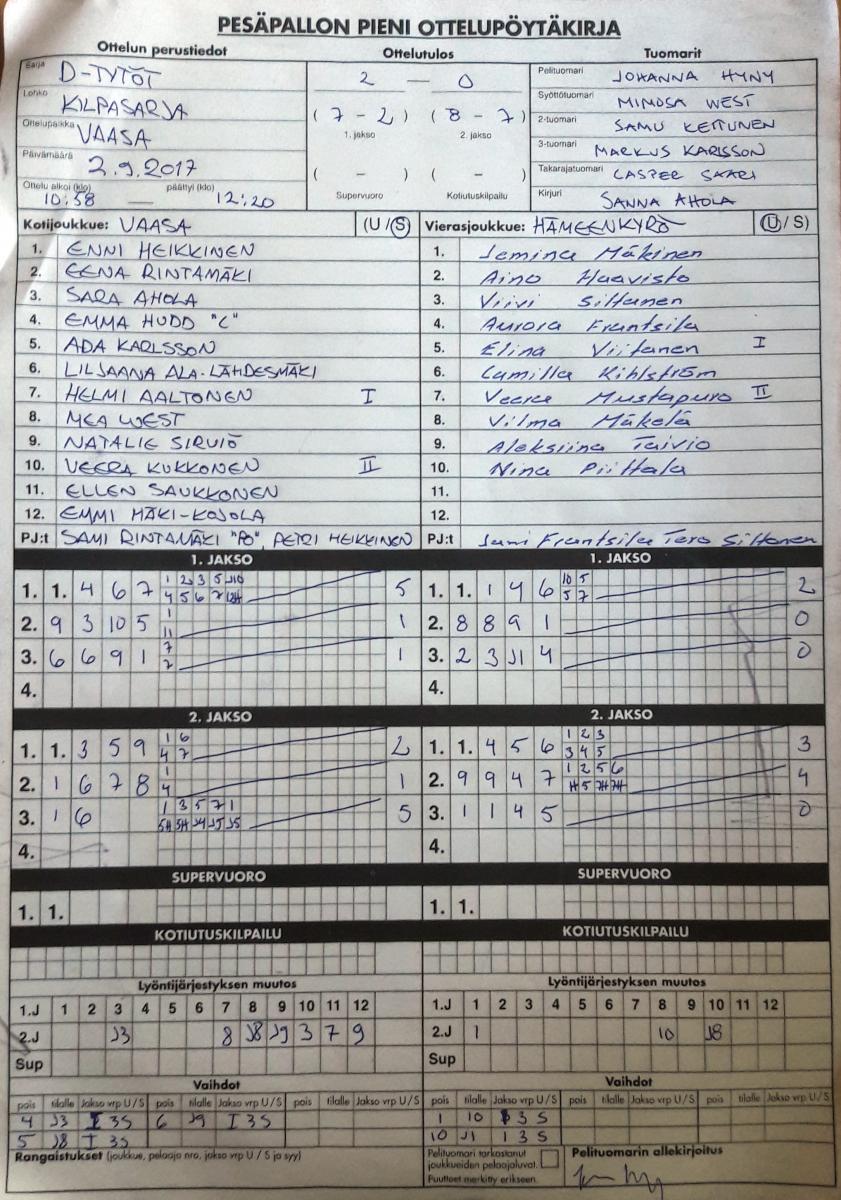 PESÄPALLON PIENI OTTELUPÖYTÄKIRJA
Ottelun perustiedot Ottelutulos Tuomarit
Sarja D-TYTÖT
Lohko KILPASARJA
Ottelupaikka VAASA
Päivämäärä 2.9.2017
Ottelu alkoi (klo) päättyi (klo)
10:58 — 12:20
2 — 0
( 7 - 2 ) ( 8 - 7 )
1. jakso 2. jakso
( - ) ( - )
Supervuoro Kotiutuskilpailu
Pelituomari JOHANNA HYNY
Syöttötuomari MIMOSA WEST
2-tuomari SAMU KETTUNEN
3-tuomari MARKUS KARLSSON
Takarajatuomari CASPER SAARI
Kirjuri SANNA AHOLA
Kotijoukkue: VAASA (U/S)
1. ENNI HEIKKINEN
2. EENA RINTAMÄKI
3. SARA AHOLA
4. EMMA HUDD "C"
5. ADA KARLSSON
6. LILJAANA ALA-LÄHDESMÄKI
7. HELMI AALTONEN I
8. MEA WEST
9. NATALIE SIRVIÖ
10. VEERA KUKKONEN II
11. ELLEN SAUKKONEN
12. EMMI MÄKI-KOJOLA
PJ:t SAMI RINTAMÄKI "PO", PETRI HEIKKINEN
Vierasjoukkue: HÄMEENKYRÖ (U/S)
1. Jemina Mäkinen
2. Aino Haavisto
3. Viivi Siltanen
4. Aurora Frantsila
5. Elina Viitanen I
6. Camilla Kihlström
7. Veera Mustapuro II
8. Vilma Mäkelä
9. Aleksiina Taivio
10. Nina Piittala
11.
12.
PJ:t Jami Frantsila Tero Siltanen
1. JAKSO
1. 1. 4 6 7 5
2. 9 3 10 5 1
3. 6 6 9 1 1
4.
1. JAKSO
1. 1. 1 4 6 2
2. 8 8 9 1 0
3. 2 3 J1 4 0
4.
2. JAKSO
1. 1. 3 5 9 1 6 4 7 2
2. 1 6 7 8 1 4 1
3. 1 6 1 3 5 7 1 5H 5H J4 J5 J5 5
4.
2. JAKSO
1. 1. 4 5 6 1 2 3 3 4 5 3
2. 9 9 4 7 1 2 5 6 4
3. 1 1 4 5 0
4.
SUPERVUORO
1. 1.
SUPERVUORO
1. 1.
KOTIUTUSKILPAILU
KOTIUTUSKILPAILU
Lyöntijärjestyksen muutos
1.J 1 2 3 4 5 6 7 8 9 10 11 12
2.J J3 8 J8 J9 3 7 9
Sup
Lyöntijärjestyksen muutos
1.J 1 2 3 4 5 6 7 8 9 10 11 12
2.J 1 10 J8
Sup
Vaihdot
pois tilalle Jakso vrp U/S pois tilalle Jakso vrp U/S pois tilalle Jakso vrp U/S
4 J3 I 3S 6 J9 I 3S
5 J8 I 3S
Vaihdot
pois tilalle Jakso vrp U/S pois tilalle Jakso vrp U/S pois tilalle Jakso vrp U/S
1 10 1 3 S
10 J1 1 3 S
Rangaistukset (joukkue, pelaaja nro, jakso vrp U/S ja syy)
Pelituomari tarkastanut
joukkueiden pelaajaluvat.
Puutteet merkitty erikseen.
Pelituomarin allekirjoitus